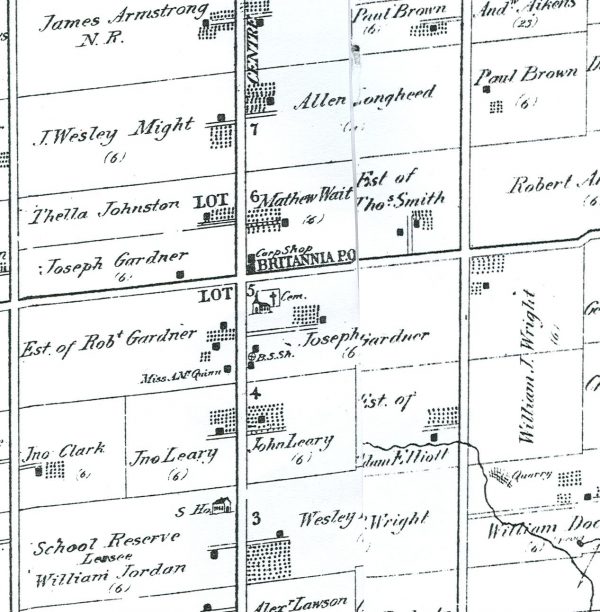 James Armstrong
N.R.
CENTRE
Paul Brown
(6)
And.w Aikens
(23)
J. Wesley Might
(6)
7
Allen Longheed
Paul Brown
(6)
Thella Johnston
LOT
6
Mathew Wait
(6)
Est of
Tho.s Smith
Robert
(6)
Joseph Gardner
(6)
Carp Shop
BRITANNIA P.O
LOT
5
Cem.
Est. of Rob.t Gardner
Miss A. Mc Quinn
B.S.Sh.
Joseph Gardner
(6
William J. Wright
(6)
4
Jno Clark
(6)
Jno Leary
(6)
John Leary
(6)
Est. of
Adam Elliott
Quarry
S Ho.
3
Wesley Wright
William
(6)
School Reserve
Lessee
William Jordan
(6)
Alex.r Lawson